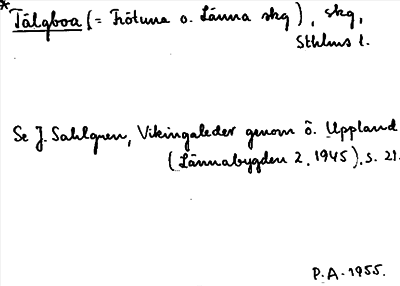 *Tälgboa (= Frötuna o. Länna skg), skg,
Sthlms l.
Se J. Sahlgren, Vikingaleder genom ö. Uppland
(Lännabygden 2, 1945), s. 21.
P.A. 1955.